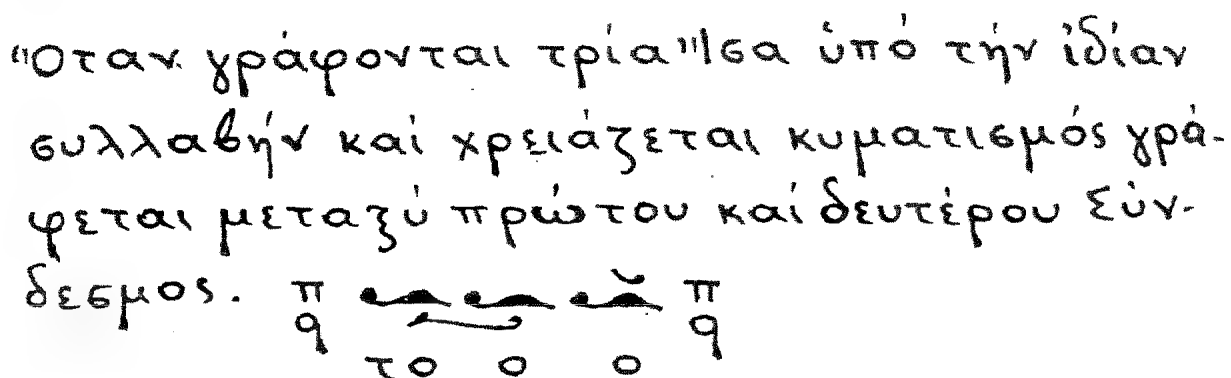 Ὅταν γράφονται τρία Ἴσα ὑπό τήν ἰδίαν
συλλαβήν καί χρειάζεται κυματισμός γρά-
φεται μεταξύ πρώτου καί δευτέρου Σύν-
δεσμος. π π
q q
το ο ο